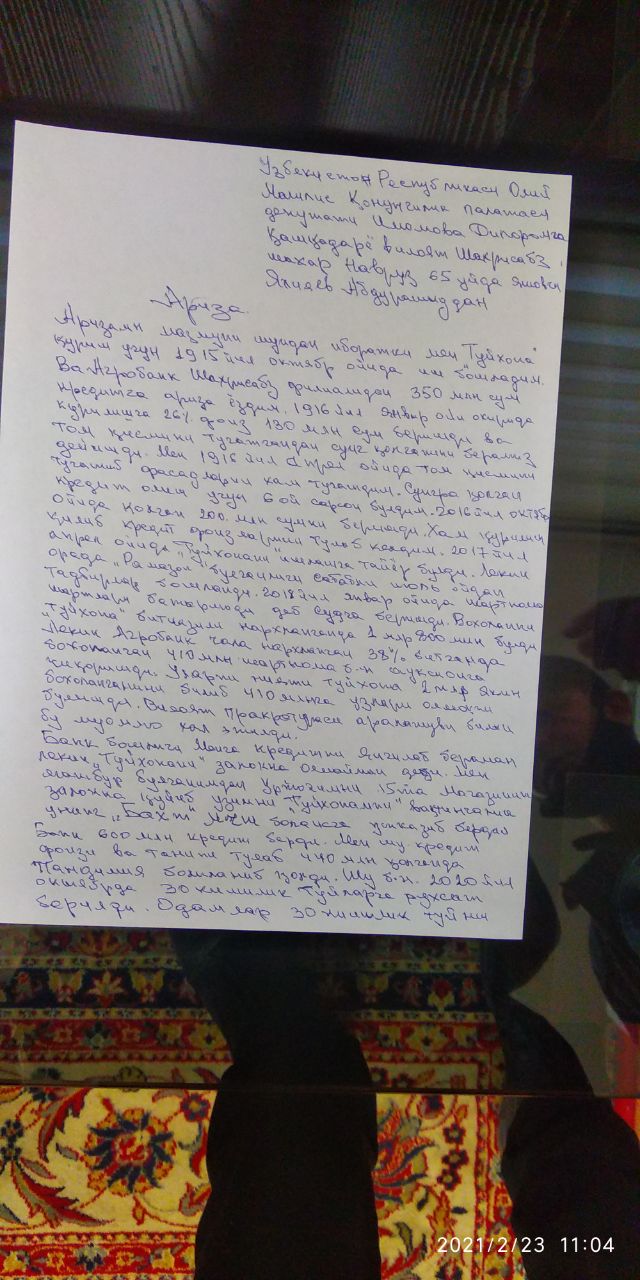 Узбекистон Республикаси Олий
Мажлис Қонунчилик палатаси
депутати Имомова Дилоромга
Қашқадарё вилоят Шахрисабз
шахар Навруз 65 уйда яшовчи
Абдурашиддан
Ариза.
Аризамн мазмуни шундан иборатки мен "Туйхона"
қуриш учун 1915 йил октябр ойида иш бошладим.
Ва Агробанк Шахрисабз филиалидан 350 млн сум
кредитга ариза ёздим. 1916 йил январ ойи охирида
қурилишга 26% фоиз 130 млн сум беришди ва
том қисмини тугатгандан сунг қолганини берамиз
дейишди. Мен 1916 йил апрел ойида том қисмини
тугатиб фасадларни хам тугатдим. Сунгра қолган
кредит олиш учун 6 ой сарсон булдим. 2016 йил октябр
ойида қолган 200 млн сумни беришди. Хам қурилиш
қилиб кредит фоизларини тулаб келдим. 2017 йил
апрел ойида "Туйхонани" ишлашга тайёр булди. Лекин
орада "Рамазон" булганлиги сабабли июль ойидан
тадбирлар бошланди. 2018 йил январ ойида шартнома
шартлари бажарилмади деб судга беришди. Бохоланиш
"Туйхона" битказилиб нархланганда 1 млр 800 млн булди
Лекин Агробанк чала нархлаган 38% битганда
бохоланган 410 млн шартнома б-н аукционга
чиқоришди. Уларни нияти туйхона 2 млр якин
бохоланганини билиб 410 млнга узлари олмоқчи
булишди. Вилоят Пракратураси аралашуви билан
бу муоммо хал этилди.
Банк бошлиғи Манга кредитни янгилаб бераман
лекин "Туйхонани" залокка олмайман деди. Мен
мажбур булганимдан 15та магазинини
залокка қуйиб узимни "Туйхонамни" вақтинчалик
унинг "Бахт" МЧЖ болансга утказиб бердим
Банк 600 млн кредит берди. Мен шу кредит
фоизи ва танини тулаб 440 млн қолганда
Пандимия бошланиб қолди. Шу б-н 2020 йил
октябрда 30 кишилик туйларга рухсат
берилди. Одамлар 30 кишилик туйни
2021/2/23 11:04